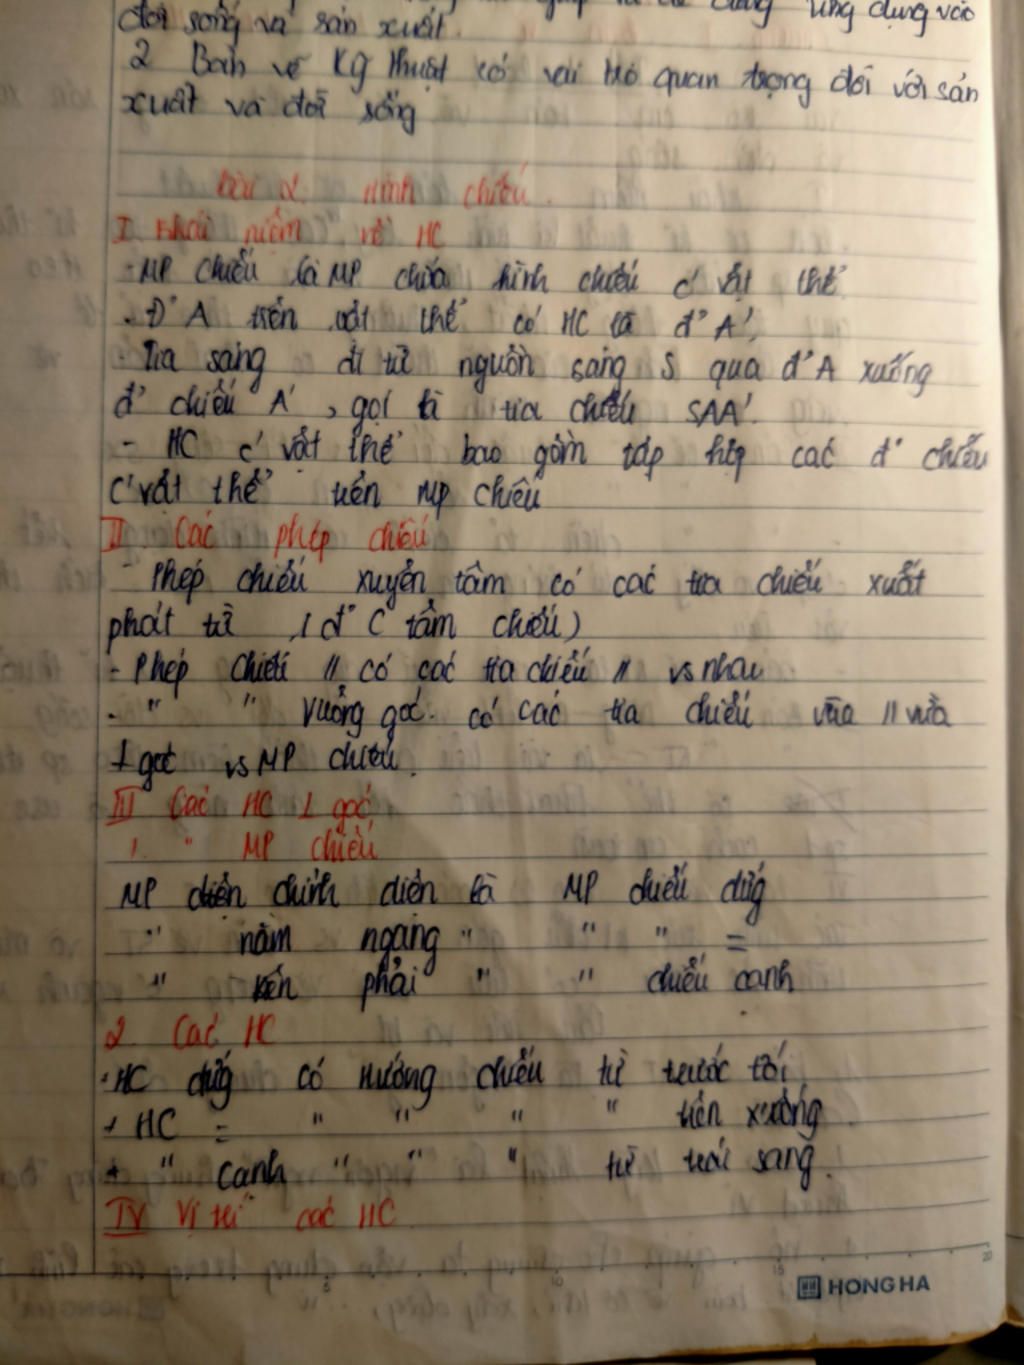 dụng ứng dụng vào
đời sống và sản xuất.
2 Bản vẽ Kỹ thuật có vai trò quan trọng đối với sản
xuất và đời sống
bài 2. Hình chiếu.
I. Khái niệm về HC
- MP chiếu là MP chứa hình chiếu c' vật thể
- Đ' A trên vật thể có HC là đ' A'.
- Tia sáng đi từ nguồn sáng S qua đ' A xuống
đ' chiếu A', gọi là tia chiếu SAA'.
- HC c' vật thể bao gồm tập hợp các đ' chiếu
c' vật thể trên MP chiếu
II. Các phép chiếu
- Phép chiếu xuyên tâm có các tia chiếu xuất
phát từ 1 đ' ( tâm chiếu)
- Phép chiếu // có các tia chiếu // vs nhau
- " " vuông góc. có các tia chiếu vừa // vừa
⊥ góc vs MP chiếu.
III Các HC ⊥ góc
1. " MP chiếu
MP chính diện là MP chiếu đứng
" nằm ngang " " " =
" bên phải " " chiếu cạnh
2. Các HC
+ HC đứng có hướng chiếu từ trước tới
+ HC = " " " " trên xuống
+ " cạnh " " " từ trái sang.
IV Vị trí các HC
5 10 15 20
HONG HA